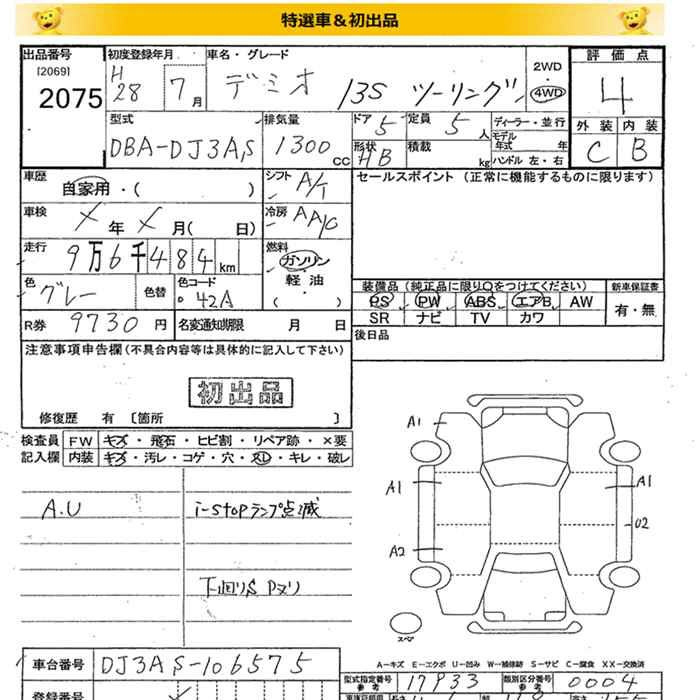 特選車＆初出品
出品番号 初度登録年月 車名・グレード 評価点
[2069] H28 7月 デミオ 13S ツーリング 2WD 4WD 4
2075
型式 排気量 ドア 定員 ディーラー・並行 外装 内装
DBA-DJ3AS 1300cc 5 5人 モデル年式 年 C B
形状 HB 積載 kg ハンドル 左・右
車歴 自家用・( ) シフト A/T セールスポイント (正常に機能するものに限ります)
車検 ×年×月( 日) 冷房 AA/C
走行 9万6千484km 燃料 ガソリン 軽油 ( )
色 グレー 色替 色コード 42A 装備品 (純正品に限り○をつけてください) 新車保証書
PS PW ABS エアB AW 有・無
SR ナビ TV カワ
R券 9730円 名変通知期限 月 日 後日品
注意事項申告欄(不具合内容等は具体的に記入して下さい)
初出品
修復歴 有 [箇所 ]
検査員記入欄 FW キズ・飛石・ヒビ割・リペア跡・×要
内装 キズ・汚レ・コゲ・穴・スレ・キレ・破レ
A.U i-stopランプ点滅
下回りS Pヌリ
A1
A1 A1
U2
A2
スペア
A－キズ E－エクボ U－凹み W－補修跡 S－サビ C－腐食 XX－交換済
車台番号 DJ3AS-106575 型式指定番号 参考 17933 類別区分番号 参考 0004
登録番号